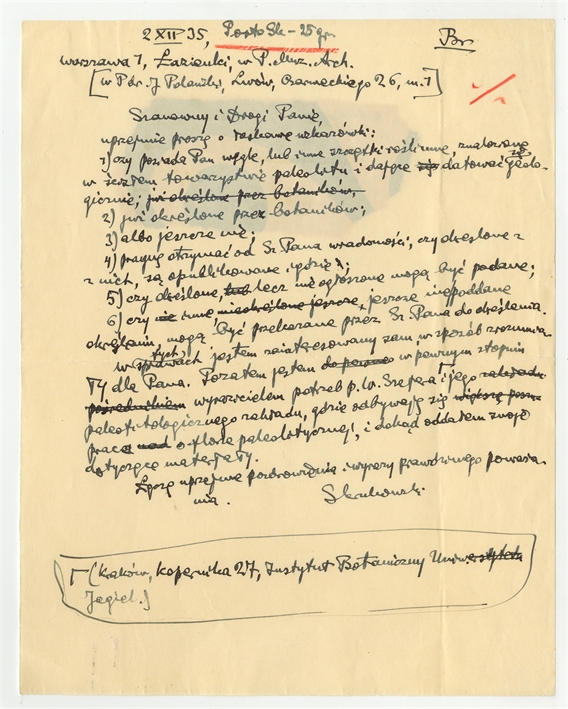 2 XII 35, Porto Sk – 25 gr. Br
Warszawa 1, Łazienki, w P. Muz. Arch.
[w Pdr. J Polański, Lwów, Czarneckiego 26, m. 1]
Szanowny i Drogi Panie,
uprzejmie proszę o łaskawe wskazówki:
1) czy posiada Pan węgle, lub inne szczątki roślinne, znalezione
w ścisłem towarzystwie paleolitu i dające się datować geolo-
gicznie; już określone przez botaników,
2) już określone przez botaników;
3) albo jeszcze nie;
4) pragnę otrzymać od Sz. Pana wiadomości, czy określone z
z nich, są opublikowane i gdzie;
5) czy określone, lub lecz nie ogłoszone mogą być podane;
6) czy nie inne nieokreślone jeszcze, jeszcze niepoddane
określeniu, mogą być przekazane przez Sz. Pana do określenia.
W tych sprawach jestem zainteresowany sam, w sposób zrozumia-
ły dla Pana. Pozatem jestem w pewnym stopniu
pośrednikiem wyrazicielem potrzeb p. W. Szafera i jego zakładu
paleofitologicznego zakładu, gdzie odbywają się
prace nad o florze paleolitycznej, i dokąd oddałem swoje
dotyczące materjały.
Łączę uprzejme pozdrowienia i wyrazy prawdziwego poważa-
nia. S Krukowski.
(Kraków, Kopernika 27, Instytut Botaniczny Uniwersytetu
Jagiel.)